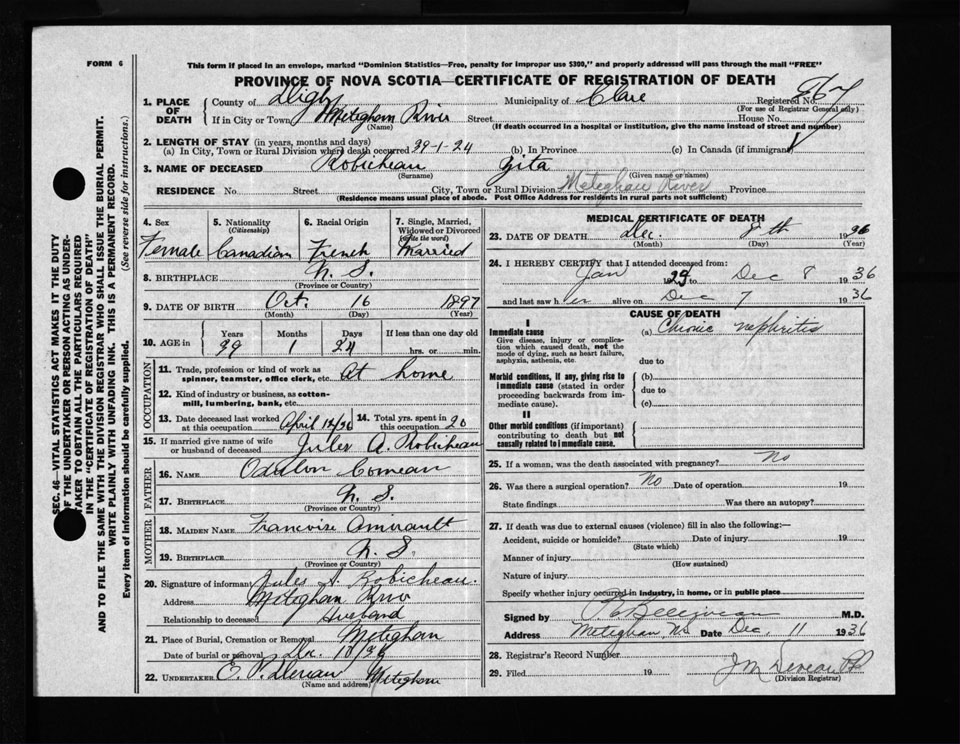 FORM 6
This form if placed in an envelope, marked "Dominion Statistics—Free, penalty for improper use $300," and properly addressed will pass through the mail "FREE"
PROVINCE OF NOVA SCOTIA—CERTIFICATE OF REGISTRATION OF DEATH
1. PLACE OF DEATH County of Digby Municipality of Clare Registered No. 867
(For use of Registrar General only)
If in City or Town Meteghan River Street House No.
(Name) (If death occurred in a hospital or institution, give the name instead of street and number)
2. LENGTH OF STAY (in years, months and days)
(a) In City, Town or Rural Division where death occurred 39-1-24 (b) In Province (c) In Canada (if immigrant)
3. NAME OF DECEASED Robicheau Zita
(Surname) (Given name or names)
RESIDENCE No. Street City, Town or Rural Division Meteghan River Province
(Residence means usual place of abode. Post Office Address for residents in rural parts not sufficient)
4. Sex 5. Nationality (Citizenship) 6. Racial Origin 7. Single, Married, Widowed or Divorced (write the word)
Female Canadian French Married
8. BIRTHPLACE N. S.
(Province or County)
9. DATE OF BIRTH Oct. 16 1897
(Month) (Day) (Year)
10. AGE in Years Months Days If less than one day old
39 1 24 hrs. or min.
OCCUPATION
11. Trade, profession or kind of work as spinner, teamster, office clerk, etc. At home
12. Kind of industry or business, as cotton-mill, lumbering, bank, etc.
13. Date deceased last worked at this occupation April 14/36 14. Total yrs. spent in this occupation 20
15. If married give name of wife or husband of deceased Jules A. Robicheau
FATHER
16. NAME Odilon Comeau
17. BIRTHPLACE N. S.
(Province or Country)
MOTHER
18. MAIDEN NAME Francoise Amirault
19. BIRTHPLACE N. S.
(Province or Country)
20. Signature of informant Jules A. Robicheau.
Address Meteghan River
Relationship to deceased Husband
21. Place of Burial, Cremation or Removal Meteghan
Date of burial or removal Dec. 10/36
22. UNDERTAKER E. P. Deveau Meteghan
(Name and address)
MEDICAL CERTIFICATE OF DEATH
23. DATE OF DEATH Dec. 8th 1936
(Month) (Day) (Year)
24. I HEREBY CERTIFY that I attended deceased from:
Jan 1929 to Dec 8 1936
and last saw her alive on Dec 7 1936
CAUSE OF DEATH
I
Immediate cause (a) Chronic nephritis
Give disease, injury or complication which caused death, not the mode of dying, such as heart failure, asphyxia, asthenia, etc.
due to
Morbid conditions, if any, giving rise to immediate cause (stated in order proceeding backwards from immediate cause).
(b)
due to
(c)
II
Other morbid conditions (if important) contributing to death but not causally related to immediate cause.
25. If a woman, was the death associated with pregnancy? No
26. Was there a surgical operation? No Date of operation 19
State findings Was there an autopsy?
27. If death was due to external causes (violence) fill in also the following:—
Accident, suicide or homicide? Date of injury 19
(State which)
Manner of injury
(How sustained)
Nature of injury
Specify whether injury occurred in industry, in home, or in public place
Signed by Belliveau M.D.
Address Meteghan NS Date Dec. 11 1936
28. Registrar's Record Number
29. Filed 19 J M Deveau
(Division Registrar)
SEC. 46—VITAL STATISTICS ACT MAKES IT THE DUTY
OF THE UNDERTAKER OR PERSON ACTING AS UNDER-
TAKER TO OBTAIN ALL THE PARTICULARS REQUIRED
IN THE "CERTIFICATE OF REGISTRATION OF DEATH"
AND TO FILE THE SAME WITH THE DIVISION REGISTRAR WHO SHALL ISSUE THE BURIAL PERMIT.
WRITE PLAINLY WITH UNFADING INK. THIS IS A PERMANENT RECORD.
Every item of information should be carefully supplied. (See reverse side for instructions.)